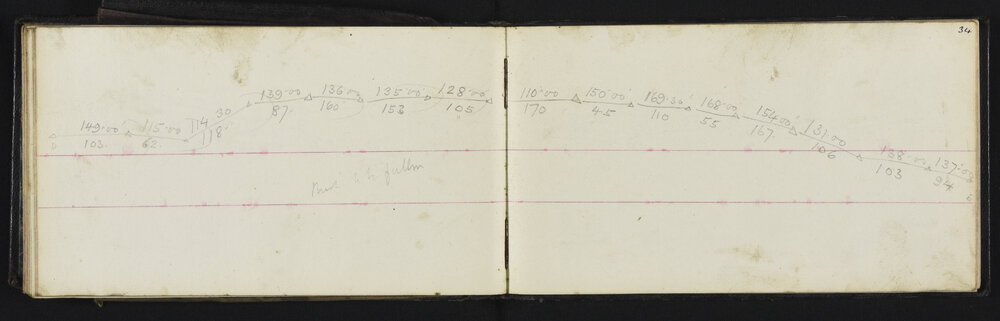 34
149·00 115·00 114 30 139·00 136·00 135·00 128·00
103. 62. 118 87. 160 153 105
110°00 150·00' 169·30' 168·00' 154·00' 131·00 138·00 137·00
170 45 110 55 167 106 103 94